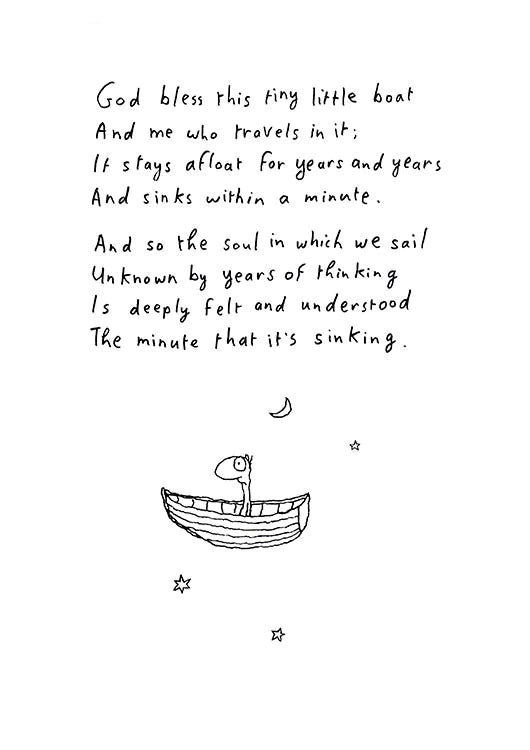 God bless this tiny little boat
And me who travels in it;
It stays afloat for years and years
And sinks within a minute.
And so the soul in which we sail
Unknown by years of thinking
Is deeply felt and understood
The minute that it's sinking.